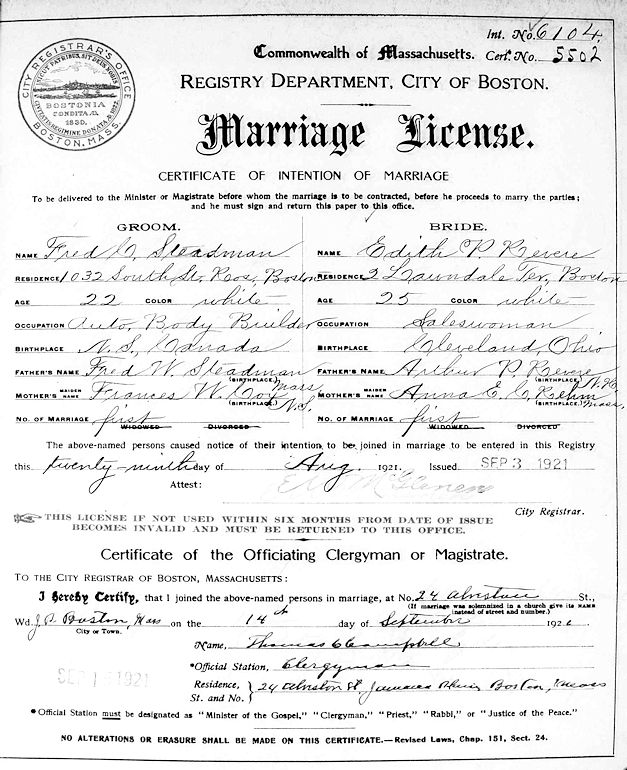 Int. No. 6104
Commonwealth of Massachusetts. Cert. No. 5502
CITY REGISTRAR'S OFFICE
BOSTONIA
CONDITA A.D.
1630.
BOSTON, MASS.
REGISTRY DEPARTMENT, CITY OF BOSTON.
Marriage License.
CERTIFICATE OF INTENTION OF MARRIAGE
To be delivered to the Minister or Magistrate before whom the marriage is to be contracted, before he proceeds to marry the parties;
and he must sign and return this paper to this office.
GROOM. BRIDE.
NAME Fred W Steadman NAME Edith P. Revere
RESIDENCE 1032 South St. Ros, Boston RESIDENCE 2 Lawndale Ter, Boston
AGE 22 COLOR white AGE 25 COLOR white
OCCUPATION Auto. Body Builder OCCUPATION Saleswoman
BIRTHPLACE N.S., Canada BIRTHPLACE Cleveland, Ohio
FATHER'S NAME Fred W. Steadman FATHER'S NAME Arthur P. Revere
(BIRTHPLACE.) Mass (BIRTHPLACE.) N.H.
MOTHER'S MAIDEN NAME Frances W. Cox MOTHER'S MAIDEN NAME Anna E. C. Rehm
(BIRTHPLACE.) N.S. (BIRTHPLACE.) Mass.
NO. OF MARRIAGE first NO. OF MARRIAGE first
WIDOWED DIVORCED WIDOWED DIVORCED
The above-named persons caused notice of their intention to be joined in marriage to be entered in this Registry
this twenty-ninth day of Aug. 1921. Issued SEP 3 1921
Attest: McGlenen
City Registrar.
THIS LICENSE IF NOT USED WITHIN SIX MONTHS FROM DATE OF ISSUE
BECOMES INVALID AND MUST BE RETURNED TO THIS OFFICE.
Certificate of the Officiating Clergyman or Magistrate.
TO THE CITY REGISTRAR OF BOSTON, MASSACHUSETTS:
I Hereby Certify, that I joined the above-named persons in marriage, at No. 24 St.,
(If marriage was solemnized in a church give its NAME
instead of street and number.)
Wd. J.P. Boston, Mass on the 14th day of September 192
City or Town.
Name, Thomas C Campbell
*Official Station, Clergyman
SEP 1 1921
Residence, 24 St, Jamaica Plain Boston, Mass
St. and No.
*Official Station must be designated as "Minister of the Gospel," "Clergyman," "Priest," "Rabbi," or "Justice of the Peace."
NO ALTERATIONS OR ERASURE SHALL BE MADE ON THIS CERTIFICATE.—Revised Laws, Chap. 151, Sect. 24.